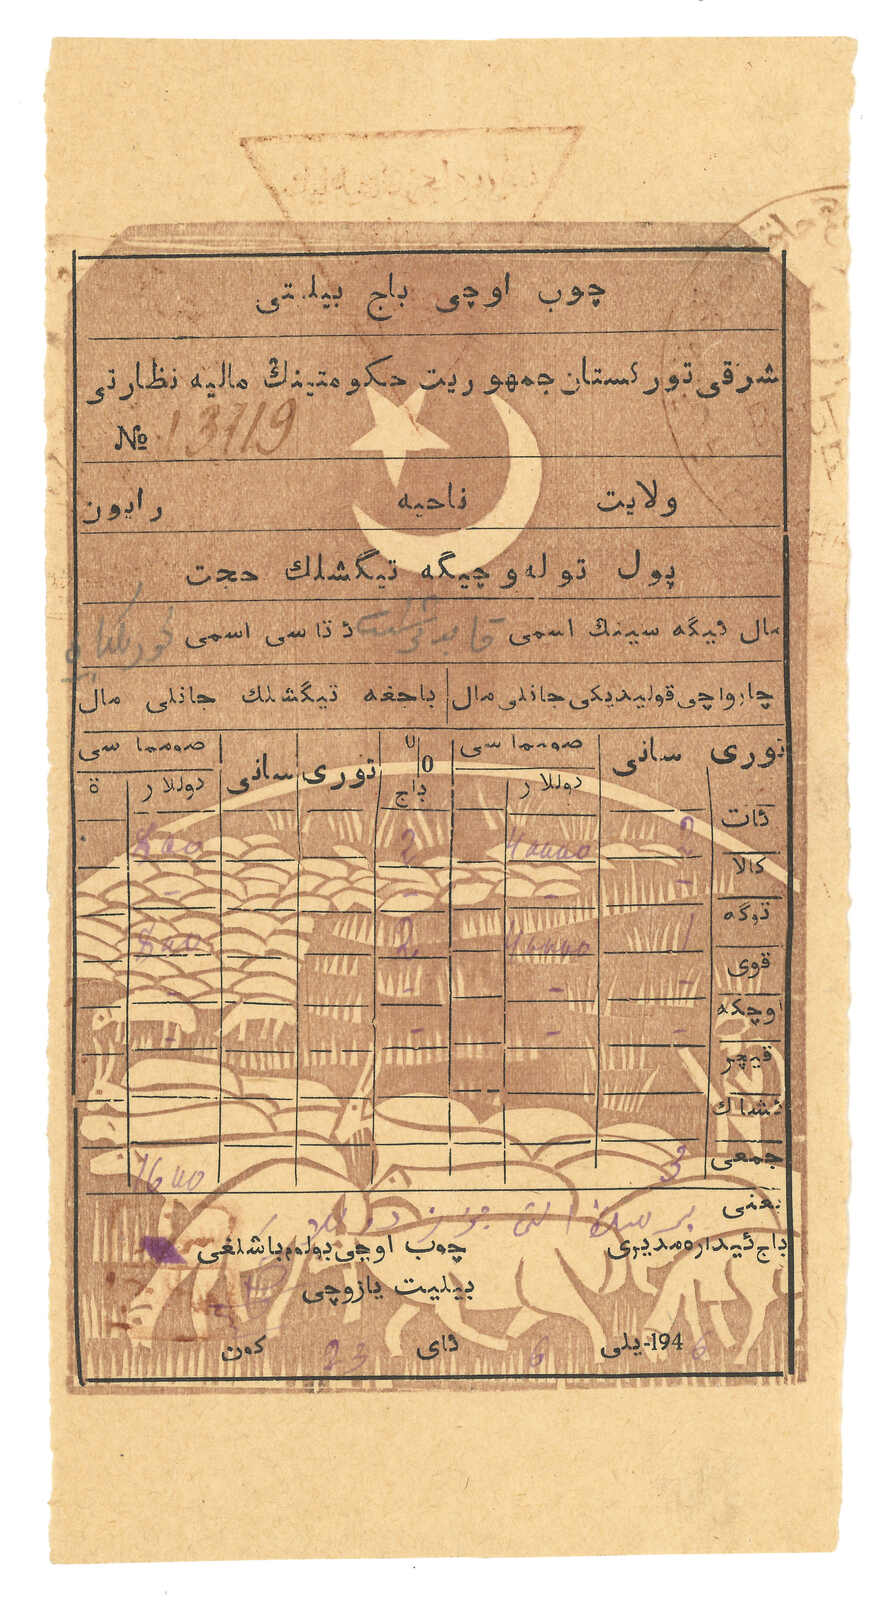 چوب اوچی باج بیلەتی
شرقی تورکستان جمهوریت حکومتینڭ مالیه نظارتی
№ 13719
ولایت ناحیه رایون
پول توله وچیگه تیگشلك حجت
مال ئیگه سینڭ اسمی ئاتاسی اسمی
چارواچی قولیدیکی جانلی مال باجغه تیگشلك جانلی مال
توری سانی صومما سی % باج توری سانی صومما سی
دوللار دوللار ة
ئات 2 40000 2 800
کالا - - - -
توگه 1 40000 2 800
قوی - - - -
اوچکه - - - -
قیچر
ئشاك
جمعی 3 1600
یعنی بر مىڭ التی یوز دوللار
باج ئیداره مدیری چوب اوچی بولوم باشلغی
بیلیت یازوچی
1946-یلی 6 ئای 23 کون